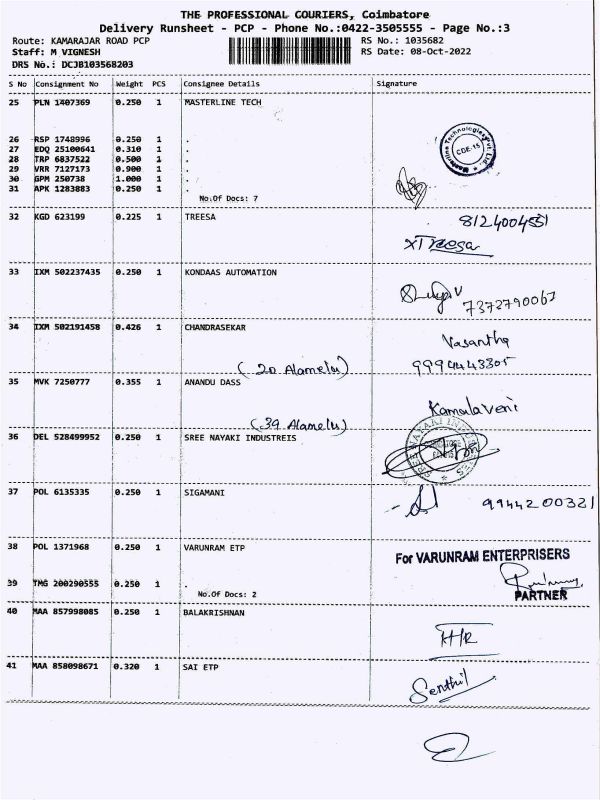 THE PROFESSIONAL COURIERS, Coimbatore
Delivery Runsheet - PCP - Phone No.:0422-3505555 - Page No.:3
Route: KAMARAJAR ROAD PCP RS No.: 1035682
Staff: M VIGNESH RS Date: 08-Oct-2022
DRS No.: DCJB103568203
S No Consignment No Weight PCS Consignee Details Signature
25 PLN 1407369 0.250 1 MASTERLINE TECH
Masterline Technologies Pvt Ltd
CDE-15
26 RSP 1748996 0.250 1 .
27 EDQ 25100641 0.310 1 .
28 TRP 6837522 0.500 1 .
29 VRR 7127173 0.900 1 .
30 GPM 250738 1.000 1 .
31 APK 1283883 0.250 1 .
No.Of Docs: 7
32 KGD 623199 0.225 1 TREESA
8124004551
Treesa
33 IXM 502237435 0.250 1 KONDAAS AUTOMATION
7372790067
34 IXM 502191458 0.426 1 CHANDRASEKAR
Vasantha
(20 Alamelu) 9994443305
35 MVK 7250777 0.355 1 ANANDU DASS
Kamalaveni
(39 Alamelu)
36 DEL 528499952 0.250 1 SREE NAYAKI INDUSTREIS
37 POL 6135335 0.250 1 SIGAMANI
9944200321
38 POL 1371968 0.250 1 VARUNRAM ETP
For VARUNRAM ENTERPRISERS
39 TMG 200290555 0.250 1 .
No.Of Docs: 2 PARTNER
40 MAA 857998085 0.250 1 BALAKRISHNAN
41 MAA 858098671 0.320 1 SAI ETP
Senthil